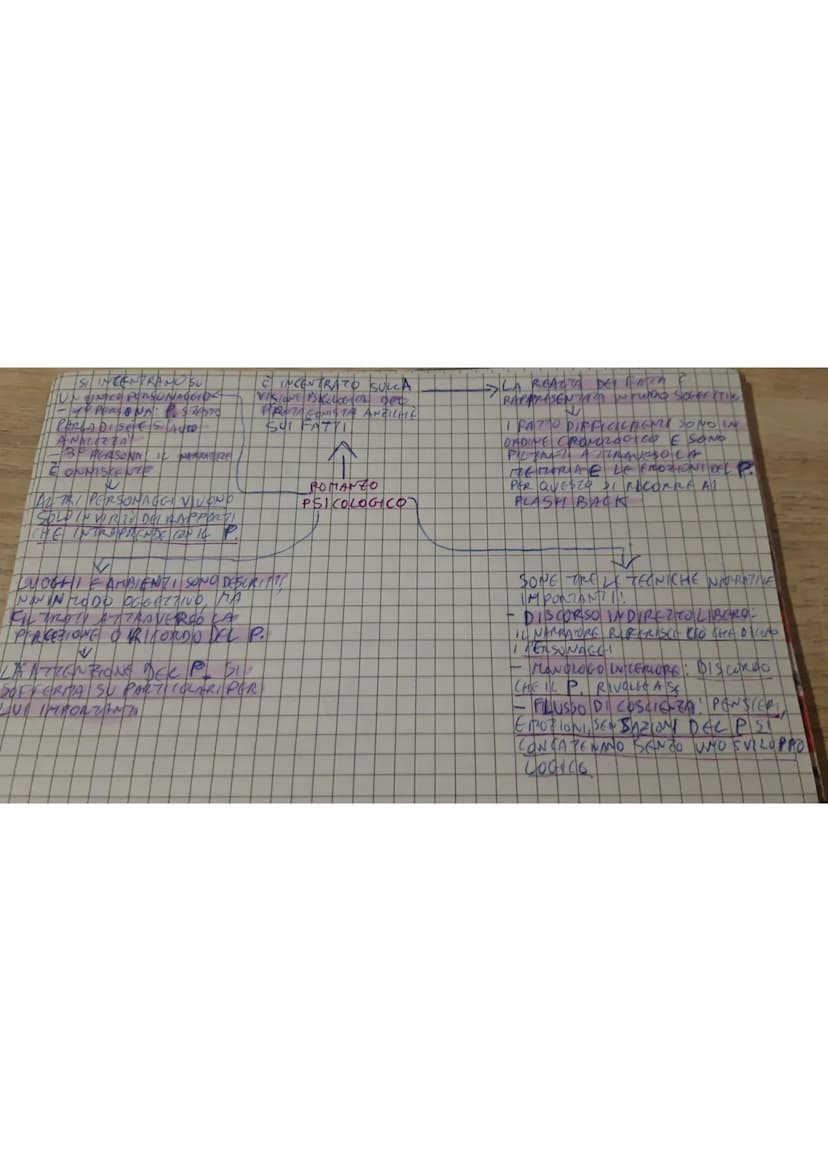 SI INCENTRANO SU
UN UNICO PERSONAGGIO
- 1ª PERSONA P. STESSO
PARLA DI SE E SI AUTO
ANALIZZA
- 3ª PERSONA IL NARRATORE
È ONNISCENTE
ALTRI PERSONAGGI VIVONO
SOLO IN VIRTÙ DEI RAPPORTI
CHE INTRAPRENDE CON IL P.
È INCENTRATO SULLA
VISIONE PSICOLOGICA DEL
PROTAGONISTA ANZICHE
SUI FATTI
LA REALTÀ DEI FATTI È
RAPPRESENTATA IN MODO SOGGETTIV
I FATTO DIFFICILMENTE SONO IN
ORDINE CRONOLOGICO E SONO
FILTRATI ATTRAVERSO LA
MEMORIA E LE EMOZIONI DEL P.
PER QUESTO SI RICORRE AI
FLASH BACK
ROMANZO
PSICOLOGICO
LUOGHI E AMBIENTI SONO DESCRITTI
NON IN MODO OGGETTIVO, MA
FILTRATI ATTRAVERSO LA
PERCEZIONE O RICORDO DEL P.
LA ATTENZIONE DEL P. SI
SOFFERMA SU PARTICOLARI PER
LUI IMPORTANTI
SONO TRE LE TECNICHE NARRATIVE
IMPORTANTI:
- DISCORSO INDIRETTO LIBERO:
IL NARRATORE RIFERISCE CIÒ CHE DICONO
I PERSONAGGI
- MONOLOGO INTERIORE: DISCORSO
CHE IL P. RIVOLGE A SE
- FLUSSO DI COSCIENZA: PENSIERI,
EMOZIONI, SENSAZIONI DEL P. SI
CONCATENANO SENZA UNO SVILUPPO
LOGICO